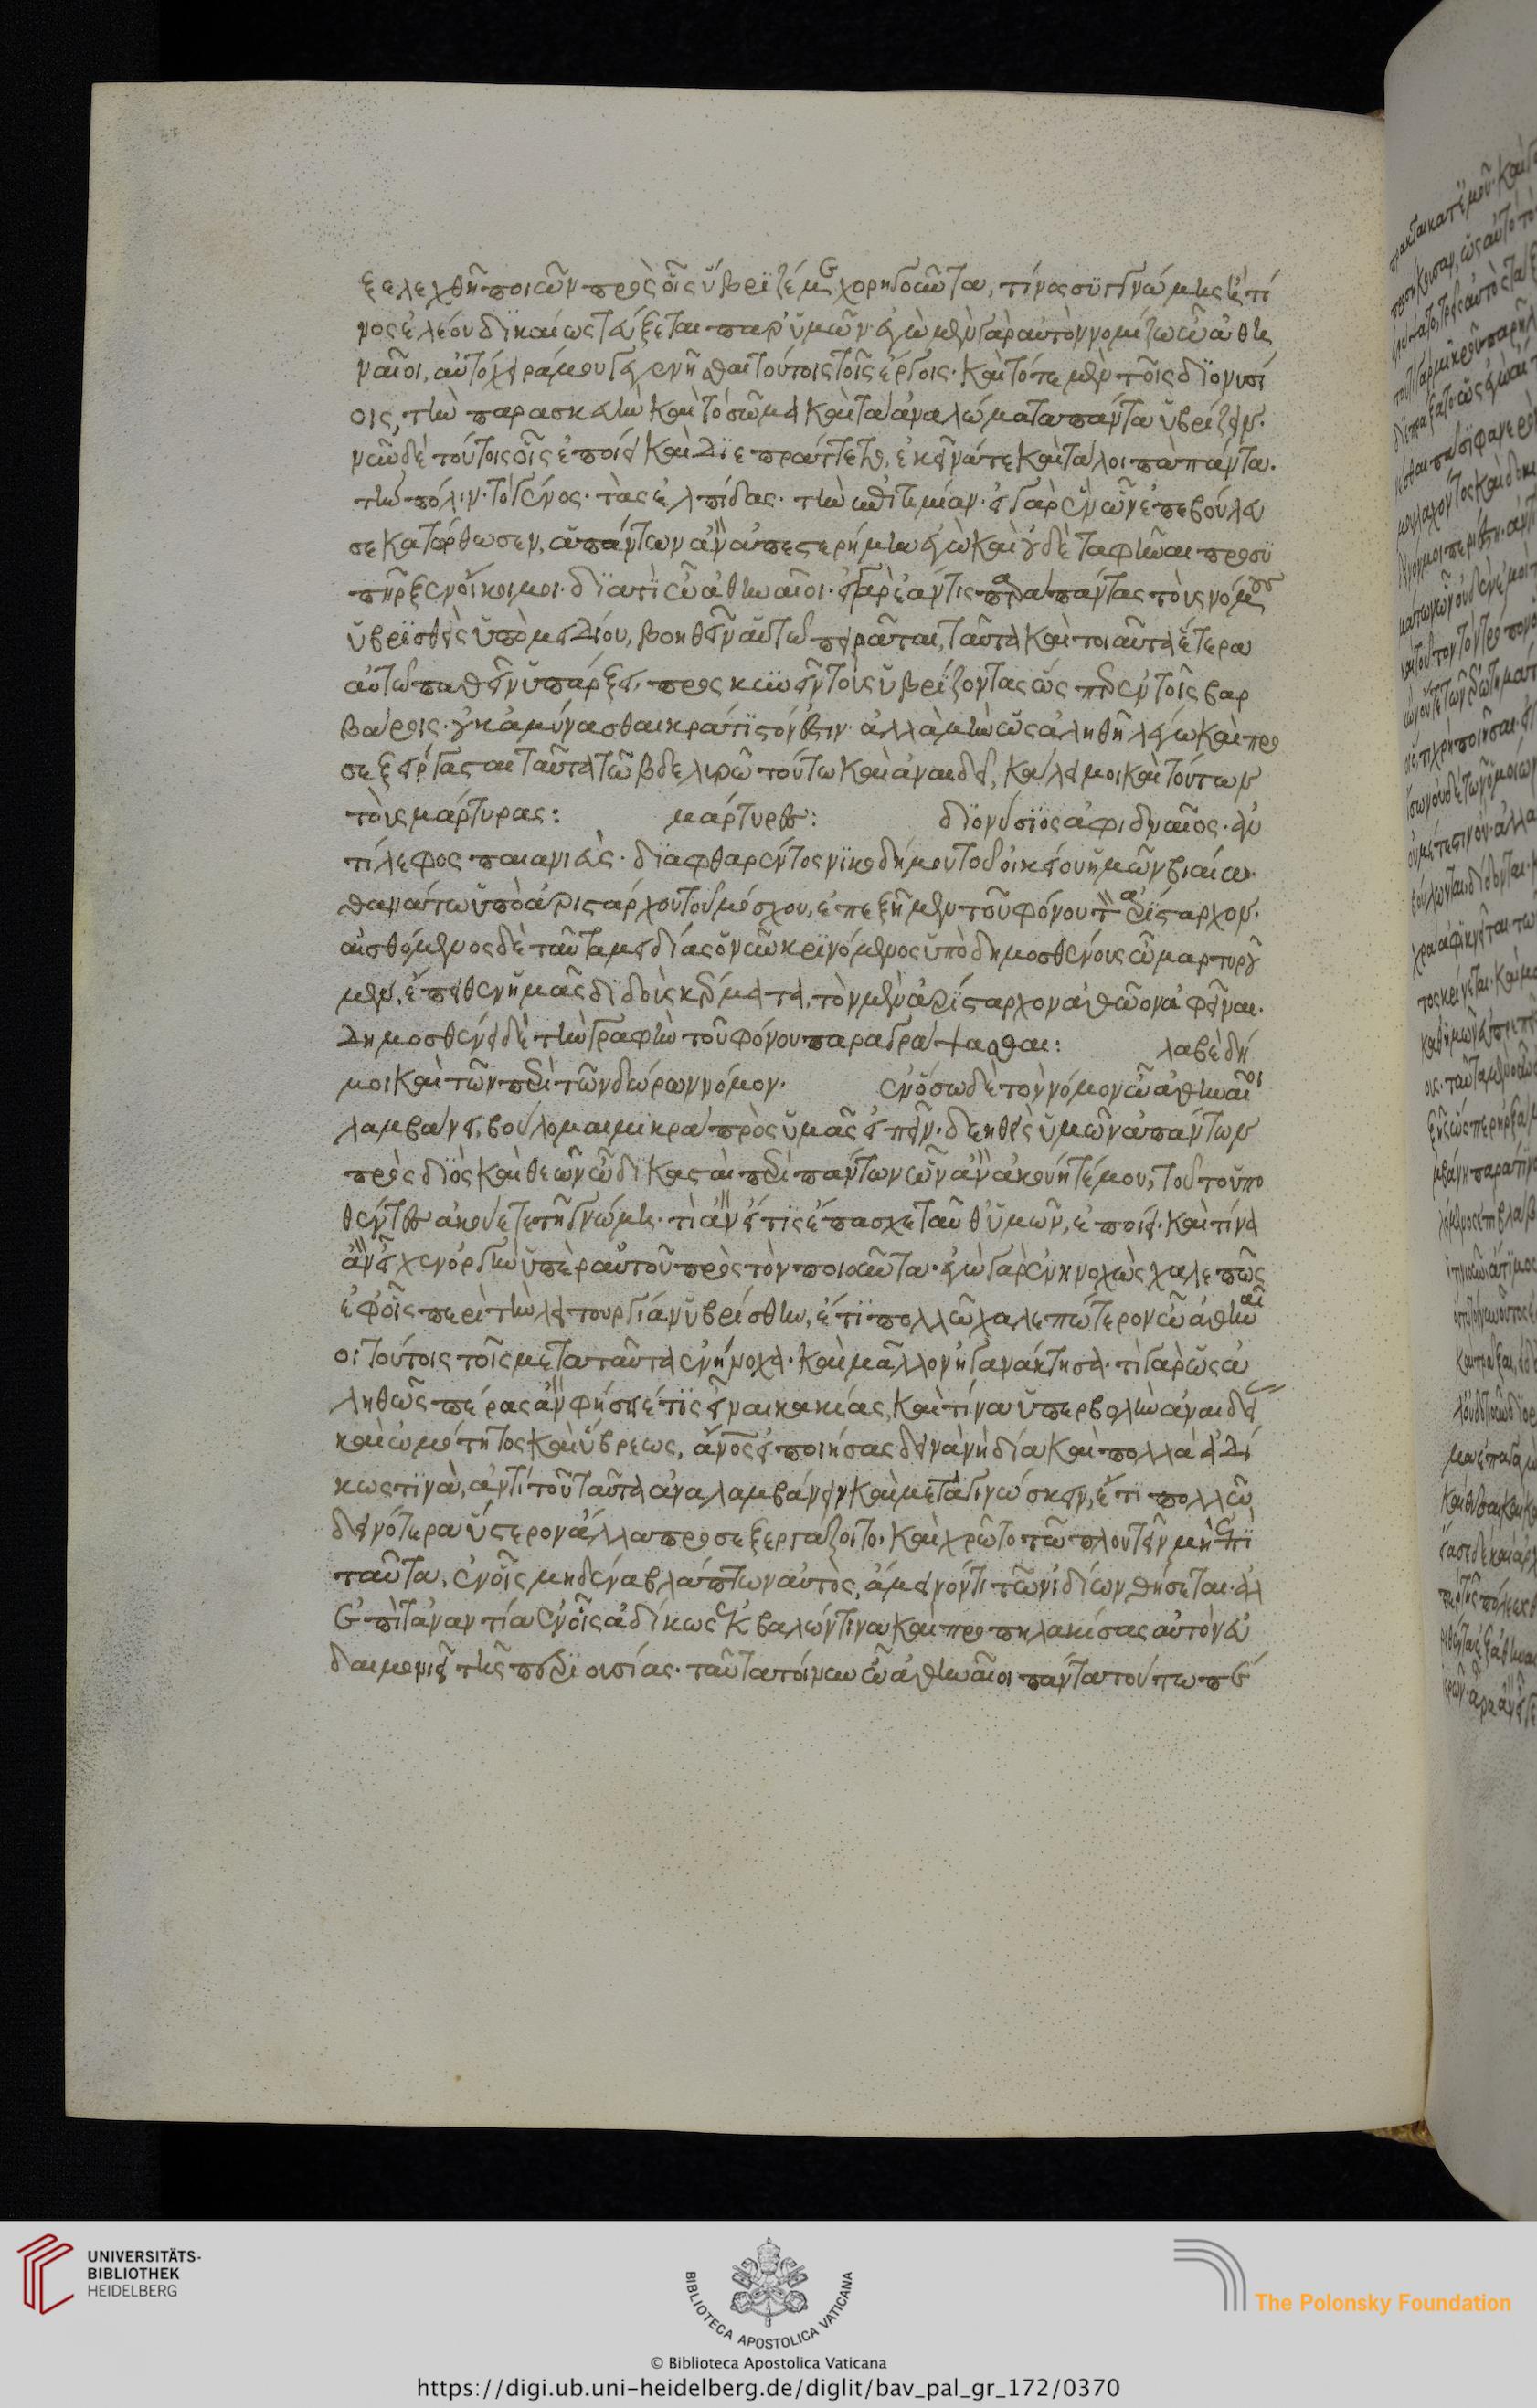 ξελεχθῆ ποιῶν πρὸς οἷς ὕβριζέ με χορηγοῦντα, τίνος συγγνώμης ἢ τί
νος ἐλέου δικαίως τεύξεται παρ' ὑμῶν· ἐγὼ μὲν γὰρ αὐτὸν νομίζω ὦ ἀθη
ναῖοι, αὐτόχειρά μου γεγενῆσθαι τούτοις τοῖς ἔργοις· καὶ τότε μὲν τοῖς διονυσί
οις, τὴν παρασκευὴν καὶ τὸ σῶμα καὶ τἀναλώματα πάντα ὕβριζεν·
νῦν δὲ τούτοις οἷς ἐποίει καὶ διεπράττετο, ἐκεῖνά τε καὶ τἄλοιπα πάντα·
τὴν πόλιν· τὸ γένος· τὰς ἐλπίδας· τὴν ἐπιτιμίαν· εἰ γὰρ ἓν ὧν ἐπεβούλευ
σε κατόρθωσεν, ἁπάντων ἂν ἀπεστερήμην ἐγὼ καὶ οὐδὲ ταφῆναι προσυ
πῆρξεν οἴκοι μοι· διατί ὦ ἀθηναῖοι· εἰ γὰρ ἐάν τις παρα πάντας τοὺς νόμους
ὑβρισθεὶς ὑπὸ μειδίου, βοηθεῖν αὑτῶ πειρᾶται, ταῦτα καὶ τοιαῦτα ἕτερα
αὐτῶ παθεῖν ὑπάρξει, προσκυνεῖν τοὺς ὑβρίζοντας ὥσπερ ἐν τοῖς βαρ
βάροις· οὐκ ἀμύνασθαι κράτιστόν ἐστιν· ἀλλὰ μὴν ὡς ἀληθῆ λέγω καὶ προ
σεξείργασται ταῦτα τῶ βδελυρῶ τούτω καὶ ἀναιδεῖ, κάλει μοι καὶ τούτων
τοὺς μάρτυρας: μάρτυρες: διονύσιος ἀφιδναῖος· ἀν
τίφιλος παιανιεὺς· διαφθαρέντος νικοδήμου τοῦ οἰκείου ἡμῶν βιαίω
θανάτω ὑπὸ ἀριστάρχου τοῦ μόσχου, ἐπεξῆμεν τοῦ φόνου τὸν ἀρίσταρχον·
αἰσθόμενος δὲ ταῦτα μειδίας ὁ νῦν κρινόμενος ὑπὸ δημοσθένους ὧ μαρτυροῦ
μεν, ἔπειθεν ἡμᾶς διδοὺς κέρματα, τὸν μὲν ἀρίσταρχον ἀθῶον ἀφεῖναι·
δημοσθένει δὲ τὴν γραφὴν τοῦ φόνου παραγράψασθαι: λαβὲ δή
μοι καὶ τῶν περὶ τῶν δώρων νόμον· ἐν ὅσω δὲ τὸν νόμον ὦ ἀθηναῖοι
λαμβάνει, βούλομαι μικρὰ πρὸς ὑμᾶς εἰπεῖν· δεηθεὶς ὑμῶν ἁπάντων
πρὸς διὸς καὶ θεῶν ὦ δικασταὶ περὶ πάντων ὧν ἂν ἀκούητέ μου, τοῦτο ὑπο
θέντες ἀκούετε τῆ γνώμη· τί ἂν εἴ τις ἔπασχε ταῦθ' ὑμῶν, ἐποίει· καὶ τίνα
ἂν εἶχεν ὀργὴν ὑπὲρ αὑτοῦ πρὸς τὸν ποιοῦντα· ἐγὼ γὰρ ἐνηνοχὼς χαλεπῶς
ἐφ' οἷς περὶ τὴν λειτουργίαν ὑβρίσθην, ἔτι πολλῶ χαλεπώτερον ὦ ἀθηναῖ
οι τούτοις τοῖς μετα ταῦτα ἐνήνοχα· καὶ μᾶλλον ἠγανάκτησα· τί γὰρ ὡς ἀ
ληθῶς πέρας ἂν φήσειέ τις εἶναι κακίας, καὶ τίνα ὑπερβολὴν ἀναιδεί
καὶ ὠμότητος καὶ ὕβρεως, ἄνος εἰ ποιήσας δεινὰ νὴ δία καὶ πολλὰ ἀδί
κως τινὰ, ἀντὶ τοῦ ταῦτα ἀναλαμβάνειν καὶ μεταγινώσκειν, ἔτι πολλῶ
δεινότερα ὕστερον ἄλλα προσεξεργάζοιτο· καὶ χρῶτο τῶ πλουτεῖν μὴ ἐπὶ
ταῦτα, ἐν οἷς μηδένα βλάπτων αὐτὸς, ἄμεινόν τι τῶν ἰδίων θήσεται· ἀλ
ἐπὶ τἀναντία ἐν οἷς ἀδίκως ἐκβαλών τινα καὶ προπηλακίσας αὑτὸν εὐ
δαιμονιεῖ τῆς περιουσίας· ταῦτα τοίνυν ὦ ἀθηναῖοι πάντα τούτω πέ
UNIVERSITÄTS-
BIBLIOTHEK
HEIDELBERG
BIBLIOTECA APOSTOLICA VATICANA
The Polonsky Foundation
© Biblioteca Apostolica Vaticana
https://digi.ub.uni-heidelberg.de/diglit/bav_pal_gr_172/0370